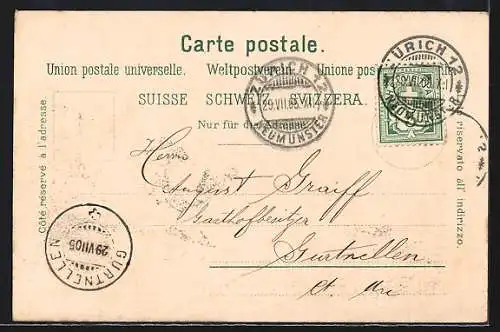 Carte postale.
Union postale universelle. Weltpostverein. Unione postale
SUISSE SCHWEIZ SVIZZERA.
Nur für die Adresse
Côté réservé à l'adresse.
riservato all' indirizzo.
ZÜRICH 12
29.VII.05
NEUMÜNSTER
ZÜRICH 12
NEUMÜNSTER
Herrn
August Graiff
Gasthofbesitzer
Gurtnellen
Ct. Uri
GURTNELLEN
29 VII 05